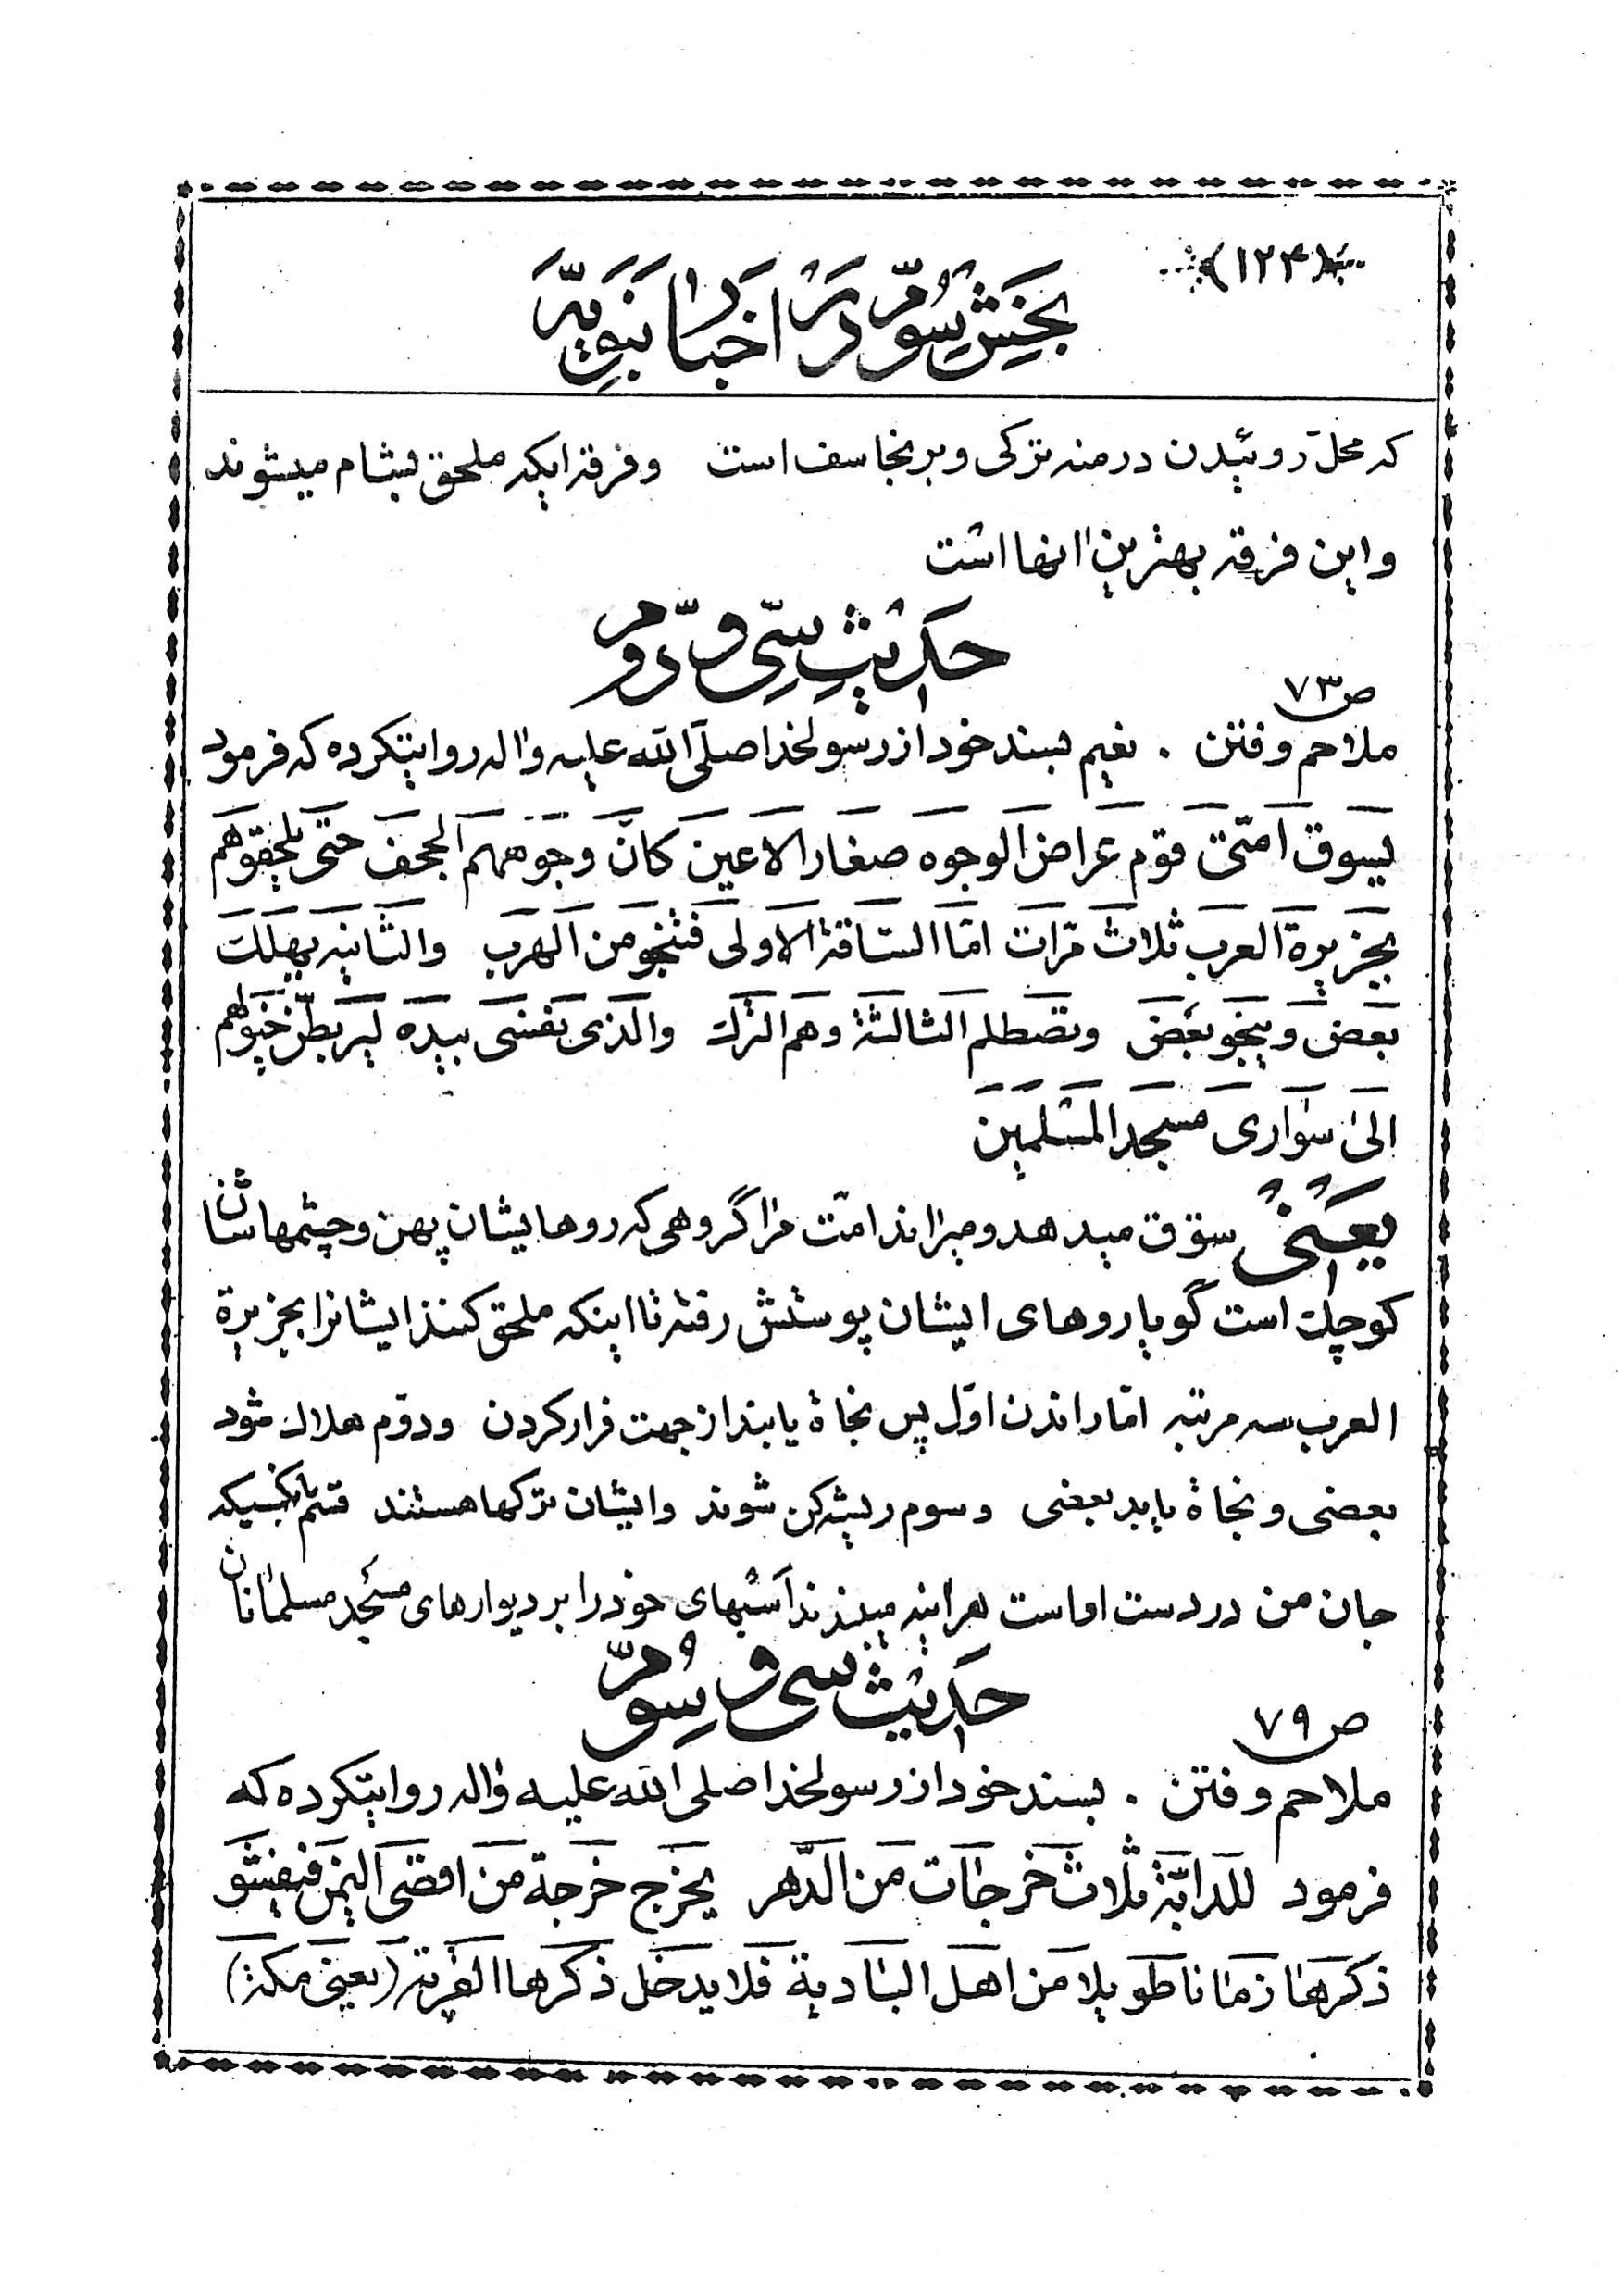 (۱۲۴)
بخش سوم در اخبار نبویه
که محل روئیدن درمنه ترکی و برنجاسف است و فرقه ایکه ملحق بشام میشوند
واین فرقه بهترین انها است
حدیث سی و دوم
ص ۷۳
ملاحم و فتن . نعیم بسند خود از رسولخدا صلی الله علیه واله روایتکرده که فرمود
یسوق امتی قوم عراض الوجوه صغار الاعین کان وجوههم الحجف حتی یلحقوهم
بجزیرة العرب ثلاث مرات اما الساقة الاولی فتنجو من الهرب والثانیه یهلک
بعض و ینجو بعض وتصطلم الثالثة وهم الترک والذی نفسی بیده لیربطن خیولهم
الی سواری مسجد المسلمین
یعنی سوق میدهد و میراند امت مرا گروهی که روهایشان پهن و چشمهاشان
کوچک است گویا روهای ایشان پوستش رفته تا اینکه ملحق کنند ایشانرا بجزیرة
العرب سه مرتبه اما راندن اول پس نجاة یابند از جهت فرار کردن ودوم هلاک شود
بعضی و نجاة یابد بعضی و سوم ریشه کن شوند وایشان ترکها هستند قسم بانکسیکه
جان من در دست اواست هراینه میبندند اسبهای خود را بر دیوارهای مسجد مسلمانان
حدیث سی و سوم
ص ۷۹
ملاحم و فتن . بسند خود از رسولخدا صلی الله علیه واله روایتکرده که
فرمود للدابة ثلاث خرجات من الدهر یخرج خرجة من اقصی الیمن فیفشو
ذکرها زمانا طویلا من اهل البادیة فلا یدخل ذکرها القریه (یعنی مکة)